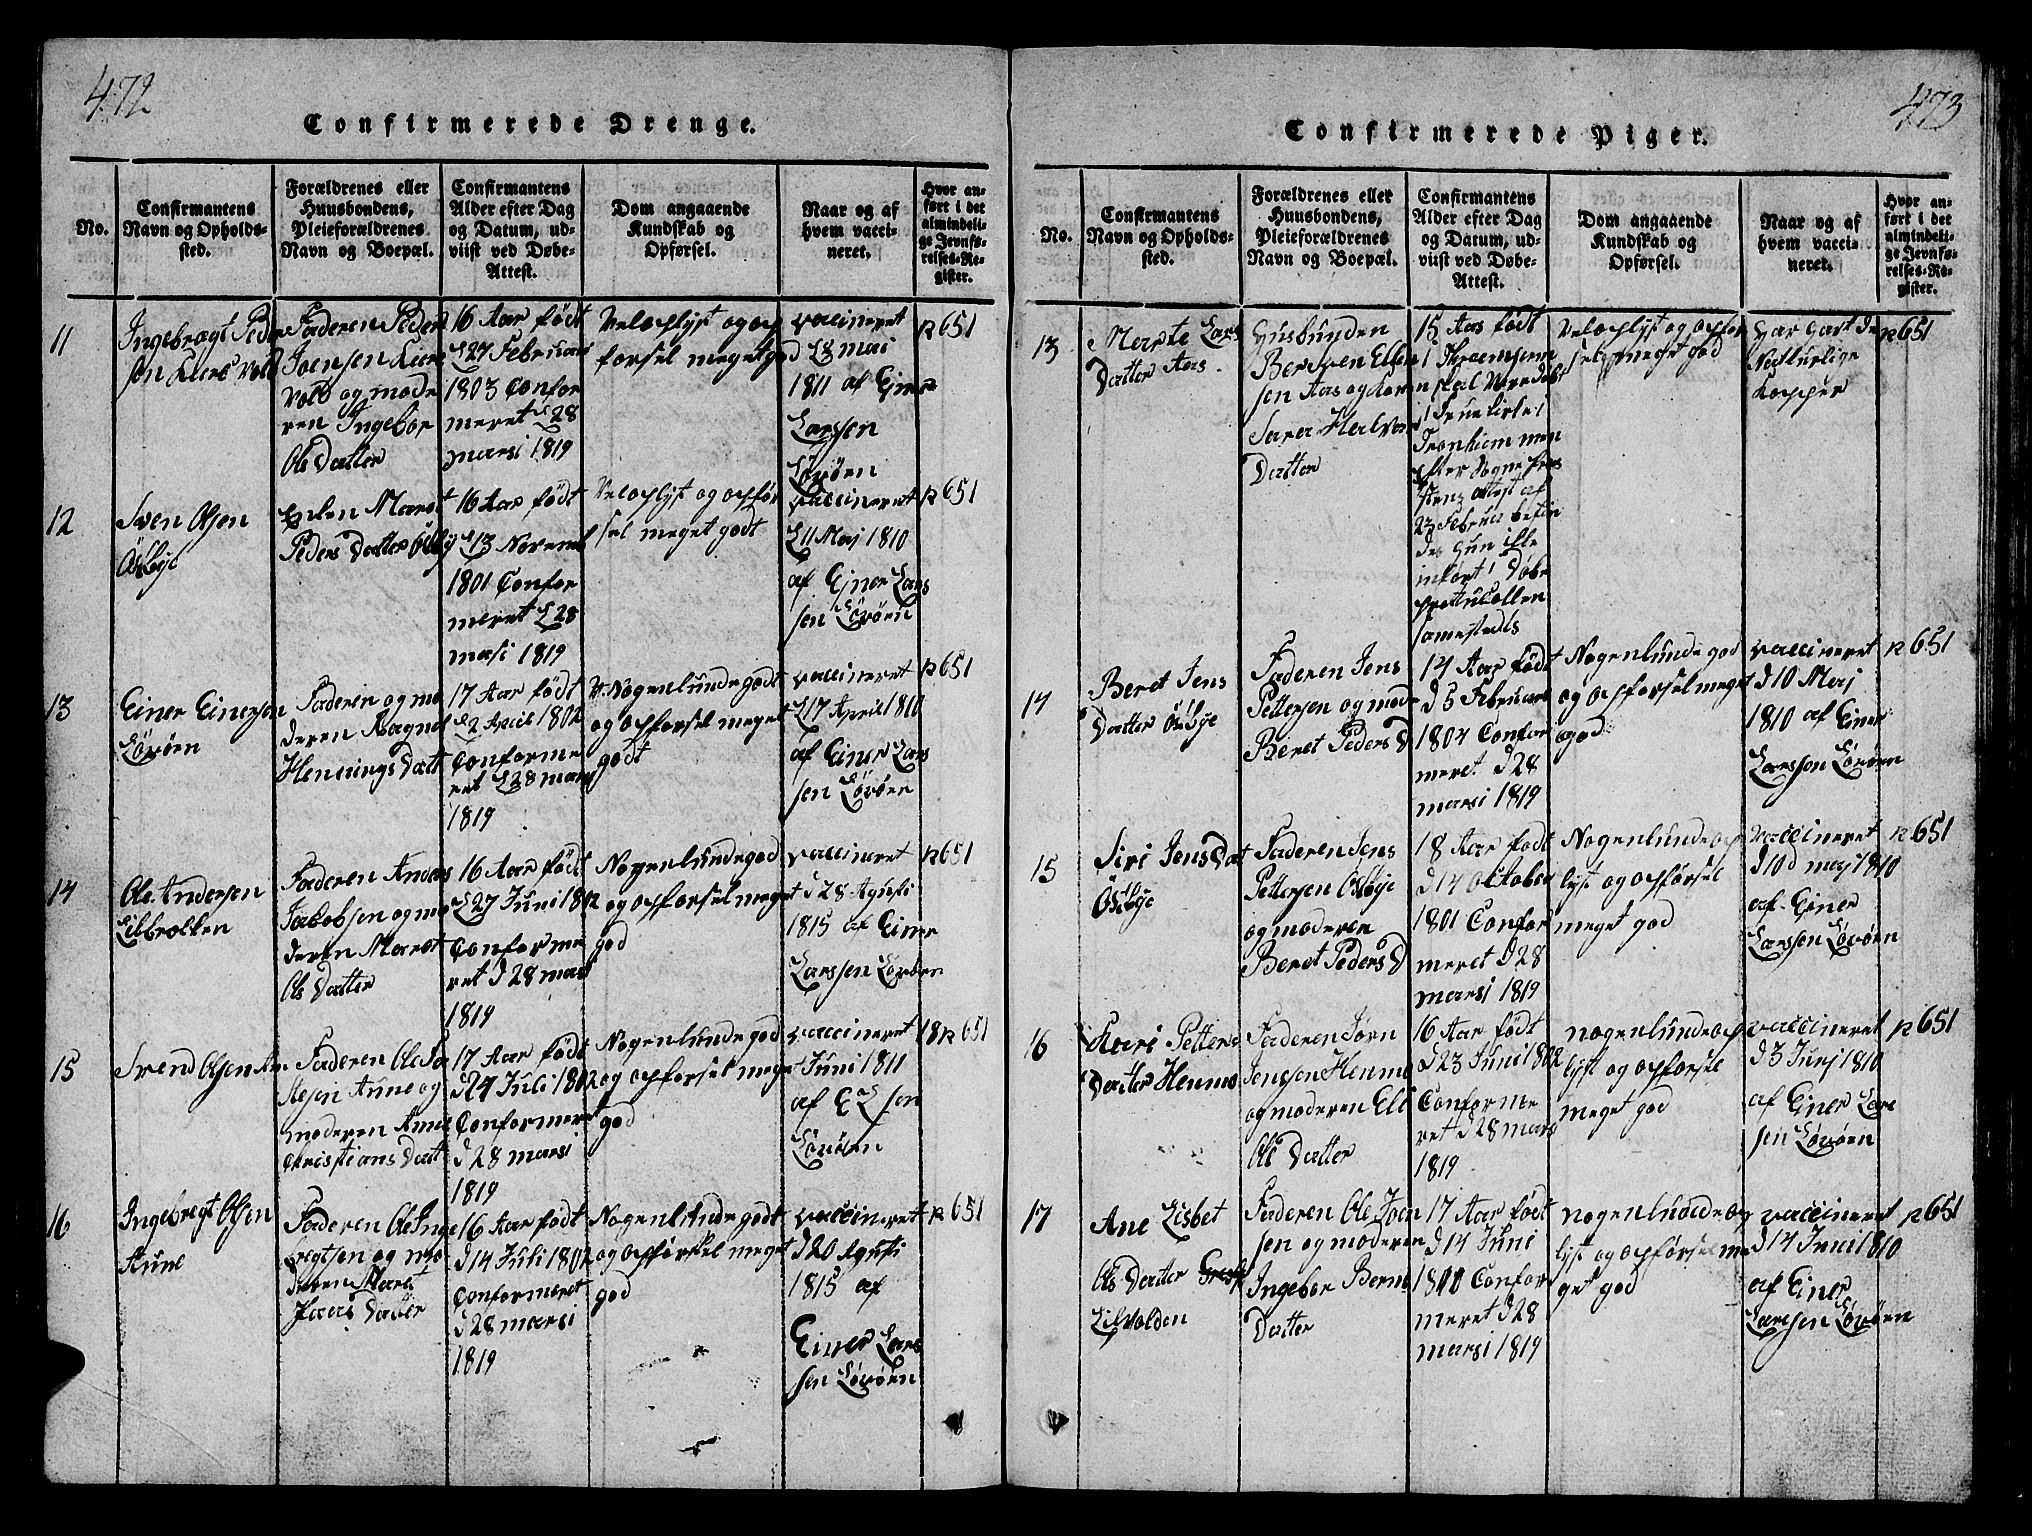 472
Confirmerede Drenge.
No.
Confirmantens
Navn og Opholds-
sted.
Forældrenes eller
Huusbondens,
Pleieforældrenes
Navn og Boepæl.
Confirmantens
Alder efter Dag
og Datum, ud-
viist ved Døbe-
Attest.
Dom angaaende
Kundskab og
Opførsel.
Naar og af
hvem vacci-
neret.
Hvor an-
ført i det
almindeli-
ge Jevnfø-
relses-Re-
gister.
11
Ingebregt Peder
sen Kiers Vold
Faderen Peder
Joensen Kiers
Vold og mode
ren Ingebor
Ols Datter
16 Aar født
d 27 Februari
1803 Confor
meret d 28
marsi 1819
Veloplyst og op
forsel meget god
vaccineret
d 8 mai
1811 af Einer
Larssen
Lövöen
n 651
12
Sven Olsen
Ösbye
Marit
Peders Datter
16 Aar født
d 13 Novemb
1801 Confor
meret d 28
masi 1819
Veloplyst og opför
sel meget godt
vaccineret
d 11 Maj 1810
af Einer Lars
sen Lövöen
n 651
13
Einer Einersen
Lövöen
Faderen og mo
deren Ragnel
Hennings Datt
17 Aar født
d 2 April 1802
Conforme
ret d 28 mars
1819
Nogenlunde godt
og opforsel meget
godt
vaccineret
d 17 April 1810
af Einer Lars
sen Lövöen
n 651
14
Ole Andersen
Lilbrotten
Faderen Anders
Jacobsen og mo
deren Marit
Ols Datter
16 Aar født
d 27 Juni 1802
Conforme
ret d 28 mars
1819
Nogenlunde god
og opforsel meget
god
vaccineret
d 28 Agusi
1815 af Einer
Larssen Lövöen
n 651
15
Svend Olsen
Faderen Ole
Aune og
moderen Anne
Christians Datt
17 Aar født
d 24 Juli 1802
Conformeret
d 28 marsi
1819
Nogenlunde god
og opforsel meget
god
vaccineret 18
Juni 1811
af E L sen
Lövöen
n 651
16
Ingebregt Olsen
Aune
Faderen Ole Inge
bregtsen og mo
deren Marit
Datter
16 Aar født
d 14 Juli 1802
Conformeret
d 28 marsi
1819
Nogenlunde godt
og opförskel meget
god
vaccineret
d 20 Agusti
1815 af
Einer Lars
sen Lövöen
n 651
473
Confirmerede Piger.
No.
Confirmantens
Navn og Opholds-
sted.
Forældrenes eller
Huusbondens,
Pleieforældrenes
Navn og Boepæl.
Confirmantens
Alder efter Dag
og Datum, ud-
viist ved Døbe-
Attest.
Dom angaaende
Kundskab og
Opførsel.
Naar og af
hvem vacci-
neret.
Hvor an-
ført i det
almindeli-
ge Jevnfø-
relses-Re-
gister.
13
Marte Lars
Datter Aas
Husbunden
Bersven Ellen
sen Aas og konen
Sara Halvor
Datter
15 Aar født
skal være døbt
i Frue kirke i
Tronhiem men
efter Sogne Præs
tens attest af
23 Februar befin
des hun ikke
infört i Döbe
prottucollen
samesteds
Veloplyst og opfor
sel meget god
Har havt de
Natturlige
Kopper
n 651
14
Beret Jens
Datter Ösbye
Faderen Jens
Pettersen og mode
Beret Peders D
14 Aar født
d 5 Februari
1804 Confor
meret d 28
marsi 1819
Nogenlunde god
og opforsel meget
god
vaccineret
d 10 Maj
1810 af Einer
Larssen Lövöen
n 651
15
Siri Jens Dat
Ösbye
Faderen Jens
Pettersen Ösbye
og moderen
Beret Peders D
18 Aar født
d 14 Oktober
1801 Confor
meret d 28
marsi 1819
Nogenlunde op
lyst og opförsel
meget god
vaccineret
d 10 d maj 1810
af Einer
Larssen Lövöen
n 651
16
Kari Petters
Datter Henmo
Faderen
Jenssen Henmo
og moderen Eli
Ols Datter
16 Aar født
d 23 Juni 1802
Conforme
ret d 28 mars
1819
nogenlunde op
lyst og opförsel
meget god
vaccineret
d 3 Junj 1810
af Einer Lars
sen Lövöen
n 651
17
Ane Lisbet
Ols Datter
Lilvolden
Faderen Ole Joen
sen og moderen
Ingebor Bern
Datter
17 Aar født
d 14 Juni
Confor
meret d 28
marsi 1819
nogenlunde op
lyst og opförsel me
get god
vaccineret
d 14 Juni 1810
af Einer
Larssen Lövöen
n 651